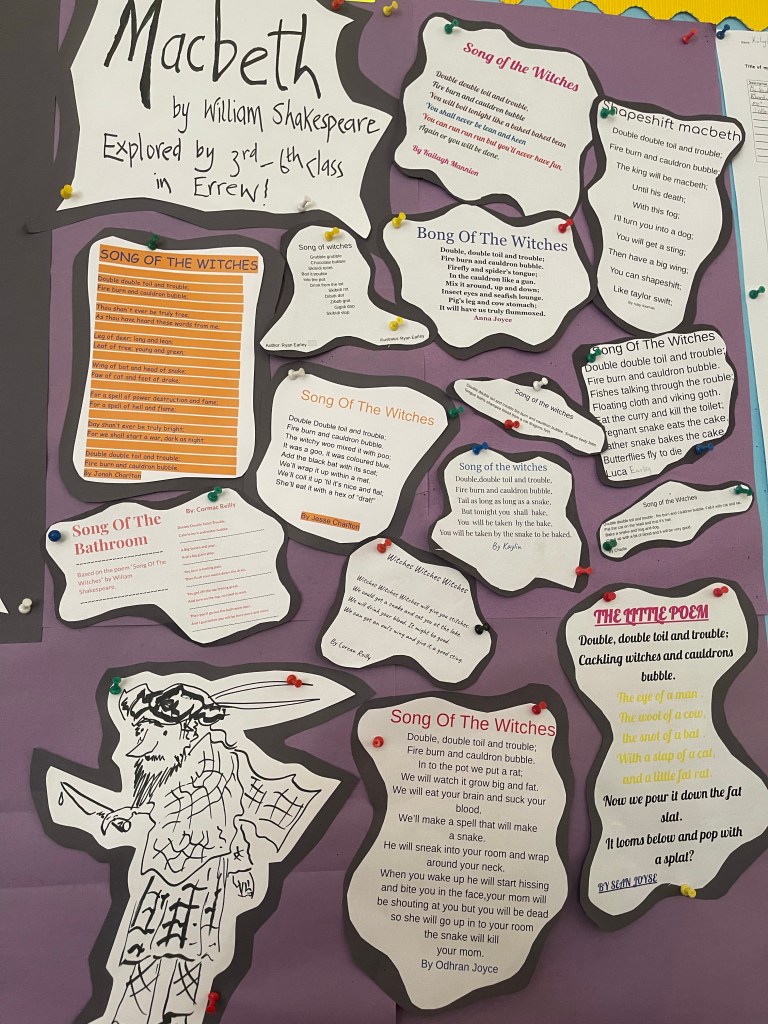 Macbeth
by William Shakespeare
Explored by 3rd-6th class
in Errew!
Song of the Witches
Double double toil and trouble,
Fire burn and cauldron bubble
You will boil tonight like a baked baked bean
You shall never be lean and keen
You can run run run but you'll never have fun.
Again or you will be done.
By Kailagh Mannion
Shapeshift macbeth
Double double toil and trouble;
Fire burn and cauldron bubble;
The king will be macbeth;
Until his death;
With this fog;
I'll turn you into a dog;
You will get a sting;
Then have a big wing;
You can shapeshift;
Like taylor swift;
SONG OF THE WITCHES
Double double toil and trouble,
Fire burn and cauldron bubble.
Thou shan't ever be truly free,
As thou have heard these words from me.
Leg of deer; long and lean,
Leaf of tree; young and green,
Wing of bat and head of snake,
Paw of cat and foot of drake,
For a spell of power destruction and fame,
For a spell of hell and flame,
Day shan't ever be truly bright,
For we shall start a war, dark as night.
Double double toil and trouble;
Fire burn and cauldron bubble
By Jonah Charlton
Song of witches
Grubble grubble
Chocolate bubble
Author: Ryan Earley
Illustrator: Ryan Earley
Bong Of The Witches
Double, double toil and trouble;
Fire burn and cauldron bubble.
Firefly and spider's tongue;
In the cauldron like a gun.
Mix it around, up and down;
Insect eyes and seafish lounge.
Pig's leg and cow stomach;
It will have us truly flummoxed.
Anna Joyce
Song Of The Witches
Double double toil and trouble;
Fire burn and cauldron bubble.
Fishes talking through the rouble;
Floating cloth and viking goth.
Eat the curry and kill the toilet;
Pregnant snake eats the cake.
ather snake bakes the cake
Butterflies fly to die
Luca Earley
Song Of The Witches
Double Double toil and trouble;
Fire burn and cauldron bubble,
The witchy woo mixed it with poo;
It was a goo, it was coloured blue.
Add the black bat with its scat,
We'll wrap it up within a mat.
We'll coil it up 'til it's nice and flat;
She'll eat it with a hex of "drat!"
By Jesse Charlton
Song of the Witches
Song of the witches
Double,double toil and trouble.
Fire burn and cauldron bubble.
Tail as long as long as a snake,
But tonight you shall bake,
You will be taken by the bake.
You will be taken by the snake to be baked.
By Kaylin
Song of the Witches
Song Of The
Bathroom
Based on the poem "Song Of The
Witches" by William
Shakespeare.
By: Cormac Reilly
Witches Witches Witches
Witches Witches Witches will give you stitches.
We could get a snake and eat you at the lake.
We will drink your blood. It might be good
We can get an owl's wing and give it a good sting
By Cormac Reilly
THE LITTLE POEM
Double, double toil and trouble;
Cackling witches and cauldrons
bubble.
The eye of a man .
The wool of a cow,
the snot of a bat .
With a slap of a cat,
and a little fat rat.
Now we pour it down the fat
slat.
It looms below and pop with
a splat?
BY SEAN JOYSE
Song Of The Witches
Double, double toil and trouble;
Fire burn and cauldron bubble.
In to the pot we put a rat;
We will watch it grow big and fat.
We will eat your brain and suck your
blood,
We'll make a spell that will make
a snake.
He will sneak into your room and wrap
around your neck,
When you wake up he will start hissing
and bite you in the face,your mom will
be shouting at you but you will be dead
so she will go up in to your room
the snake will kill
your mom.
By Odhran Joyce